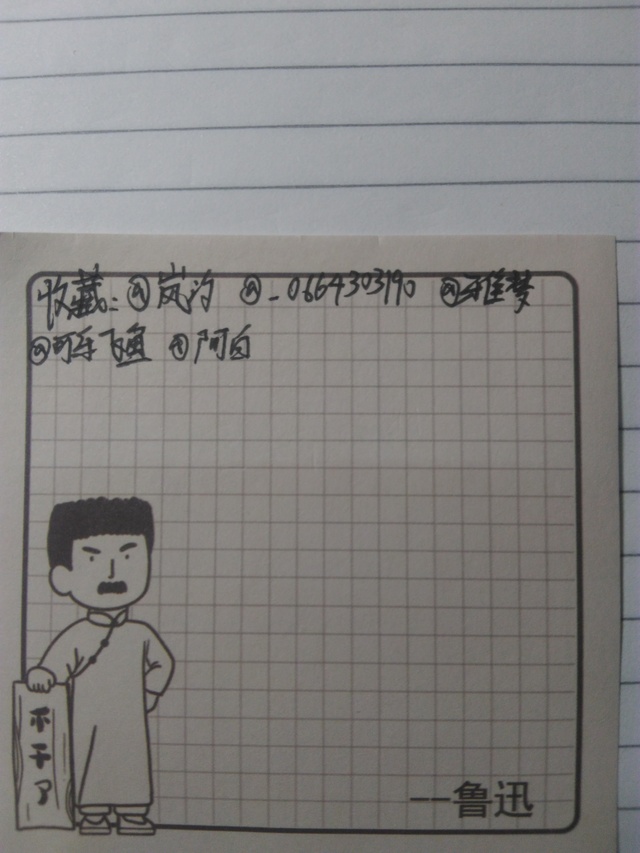 收藏：@岚汐 @-0664303190 @雅梦
@可乐飞鱼 @阿白
不干了
——鲁迅